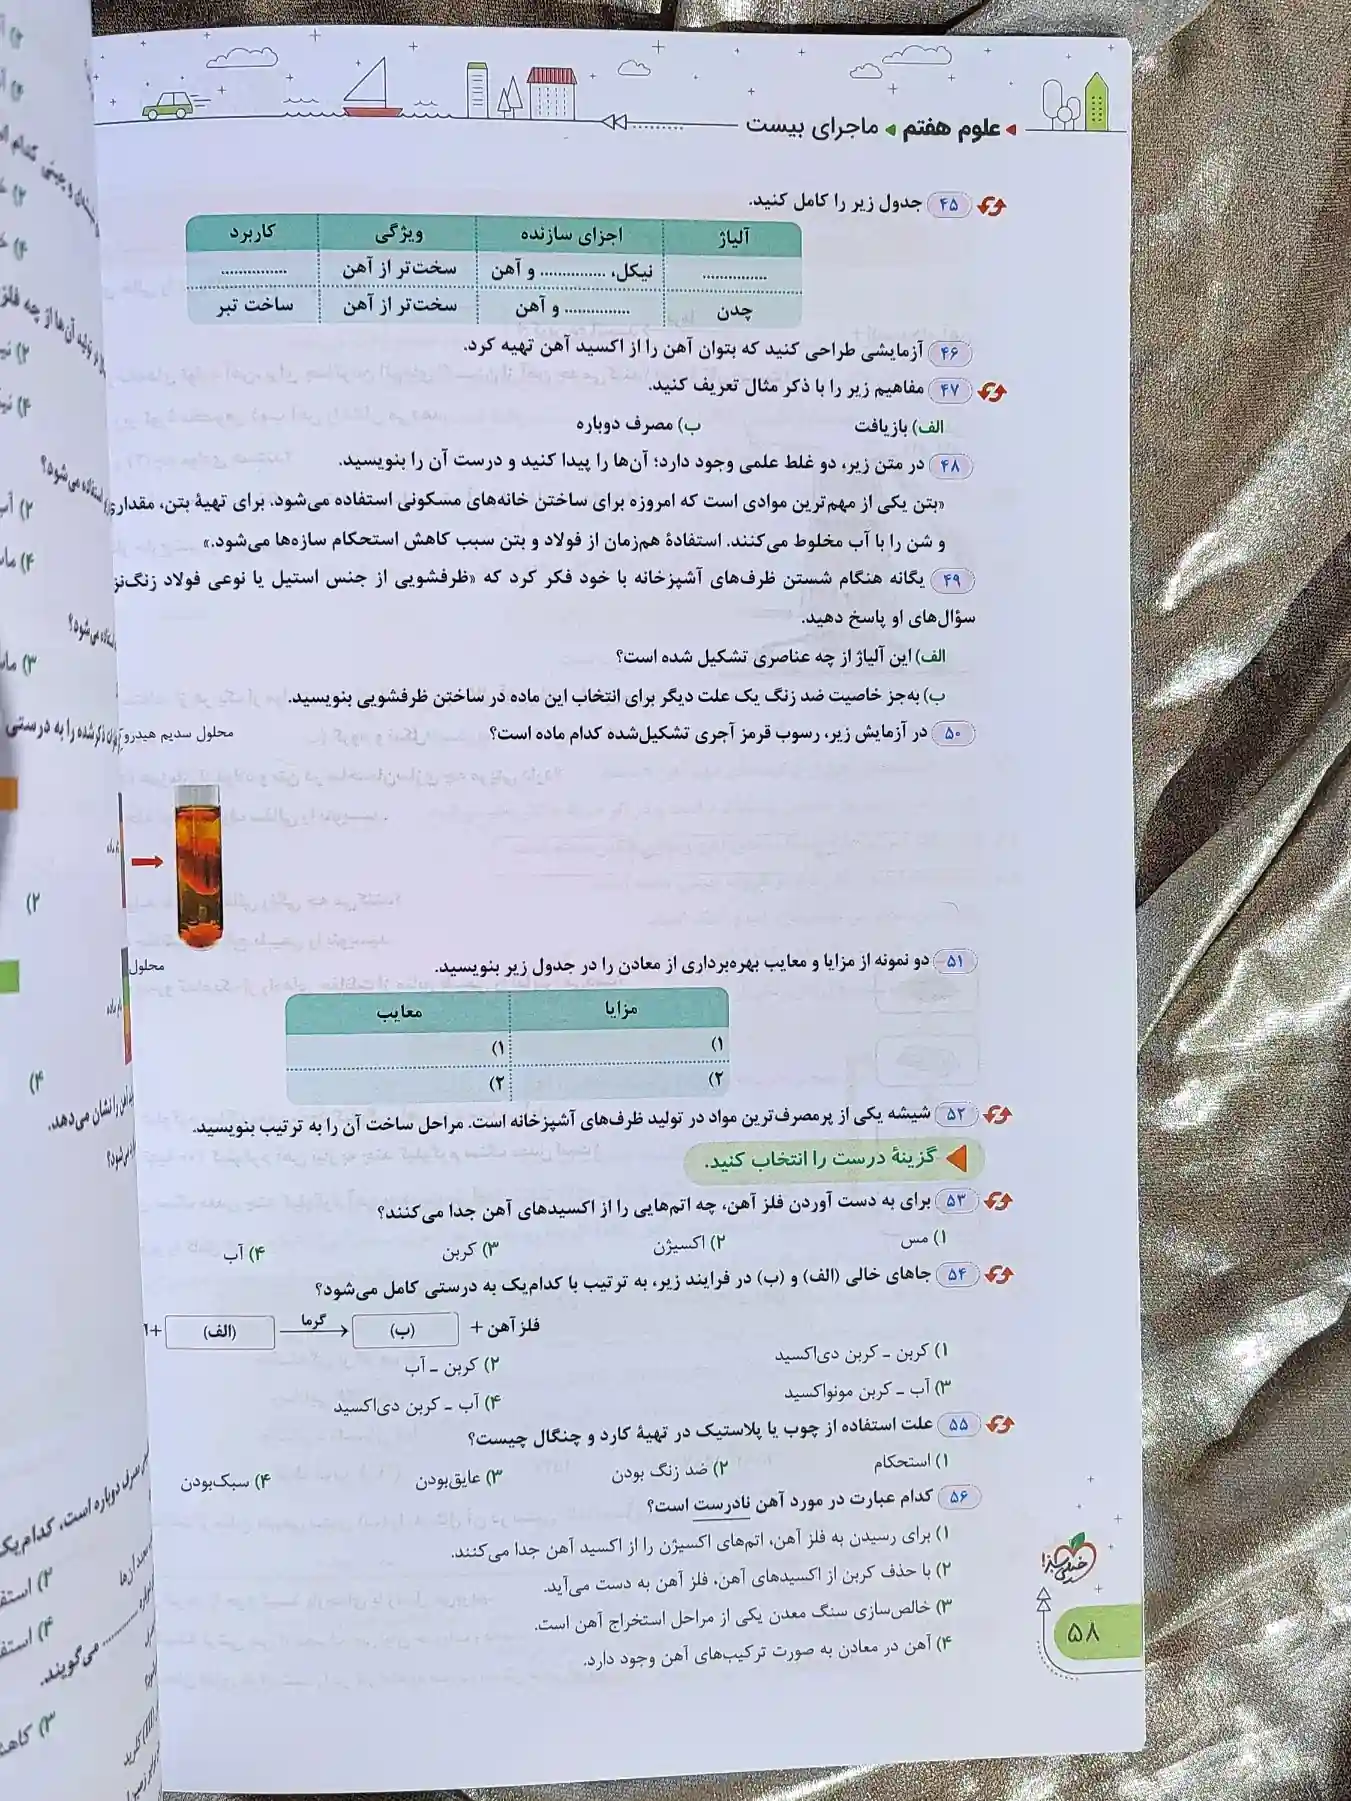 علوم هفتم ◂ ماجرای بیست
۴۵ جدول زیر را کامل کنید.
آلیاژ اجزای سازنده ویژگی کاربرد
............... نیکل، ............... و آهن سخت‌تر از آهن ...............
چدن ............... و آهن سخت‌تر از آهن ساخت تبر
۴۶ آزمایشی طراحی کنید که بتوان آهن را از اکسید آهن تهیه کرد.
۴۷ مفاهیم زیر را با ذکر مثال تعریف کنید.
الف) بازیافت ب) مصرف دوباره
۴۸ در متن زیر، دو غلط علمی وجود دارد؛ آن‌ها را پیدا کنید و درست آن را بنویسید.
«بتن یکی از مهم‌ترین موادی است که امروزه برای ساختن خانه‌های مسکونی استفاده می‌شود. برای تهیهٔ بتن، مقداری
و شن را با آب مخلوط می‌کنند. استفادهٔ هم‌زمان از فولاد و بتن سبب کاهش استحکام سازه‌ها می‌شود.»
۴۹ یگانه هنگام شستن ظرف‌های آشپزخانه با خود فکر کرد که «ظرفشویی از جنس استیل یا نوعی فولاد
سؤال‌های او پاسخ دهید.
الف) این آلیاژ از چه عناصری تشکیل شده است؟
ب) به‌جز خاصیت ضد زنگ یک علت دیگر برای انتخاب این ماده در ساختن ظرفشویی بنویسید.
۵۰ در آزمایش زیر، رسوب قرمز آجری تشکیل‌شده کدام ماده است؟
محلول سدیم
محلول
۵۱ دو نمونه از مزایا و معایب بهره‌برداری از معادن را در جدول زیر بنویسید.
مزایا معایب
۱) ۱)
۲) ۲)
۵۲ شیشه یکی از پرمصرف‌ترین مواد در تولید ظرف‌های آشپزخانه است. مراحل ساخت آن را به ترتیب بنویسید.
گزینهٔ درست را انتخاب کنید.
۵۳ برای به دست آوردن فلز آهن، چه اتم‌هایی را از اکسیدهای آهن جدا می‌کنند؟
۱) مس ۲) اکسیژن ۳) کربن ۴) آب
۵۴ جاهای خالی (الف) و (ب) در فرایند زیر، به ترتیب با کدام‌یک به درستی کامل می‌شود؟
فلز آهن + (ب) گرما (الف) +
۱) کربن ـ کربن دی‌اکسید ۲) کربن ـ آب
۳) آب ـ کربن مونواکسید ۴) آب ـ کربن دی‌اکسید
۵۵ علت استفاده از چوب یا پلاستیک در تهیهٔ کارد و چنگال چیست؟
۱) استحکام ۲) ضد زنگ بودن ۳) عایق‌بودن ۴) سبک‌بودن
۵۶ کدام عبارت در مورد آهن نادرست است؟
۱) برای رسیدن به فلز آهن، اتم‌های اکسیژن را از اکسید آهن جدا می‌کنند.
۲) با حذف کربن از اکسیدهای آهن، فلز آهن به دست می‌آید.
۳) خالص‌سازی سنگ معدن یکی از مراحل استخراج آهن است.
۴) آهن در معادن به صورت ترکیب‌های آهن وجود دارد.
خیلی سبز
۵۸